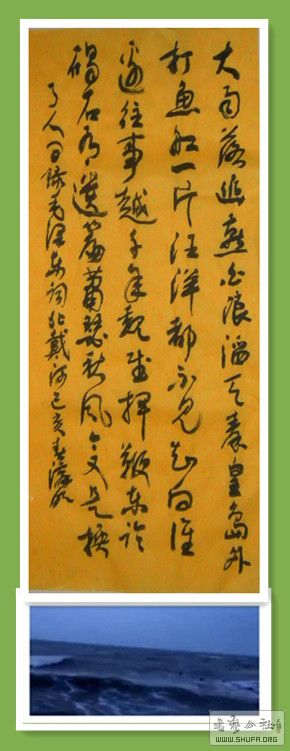 大雨落幽燕白浪滔天秦皇島外
打魚船一片汪洋都不见知向谁
邊往事越千年魏武揮鞭东临
碣石有遺篇蕭瑟秋风今又是换
了人间 毛泽东词北戴河己亥春
书艺公社
WWW.SHUFA.ORG